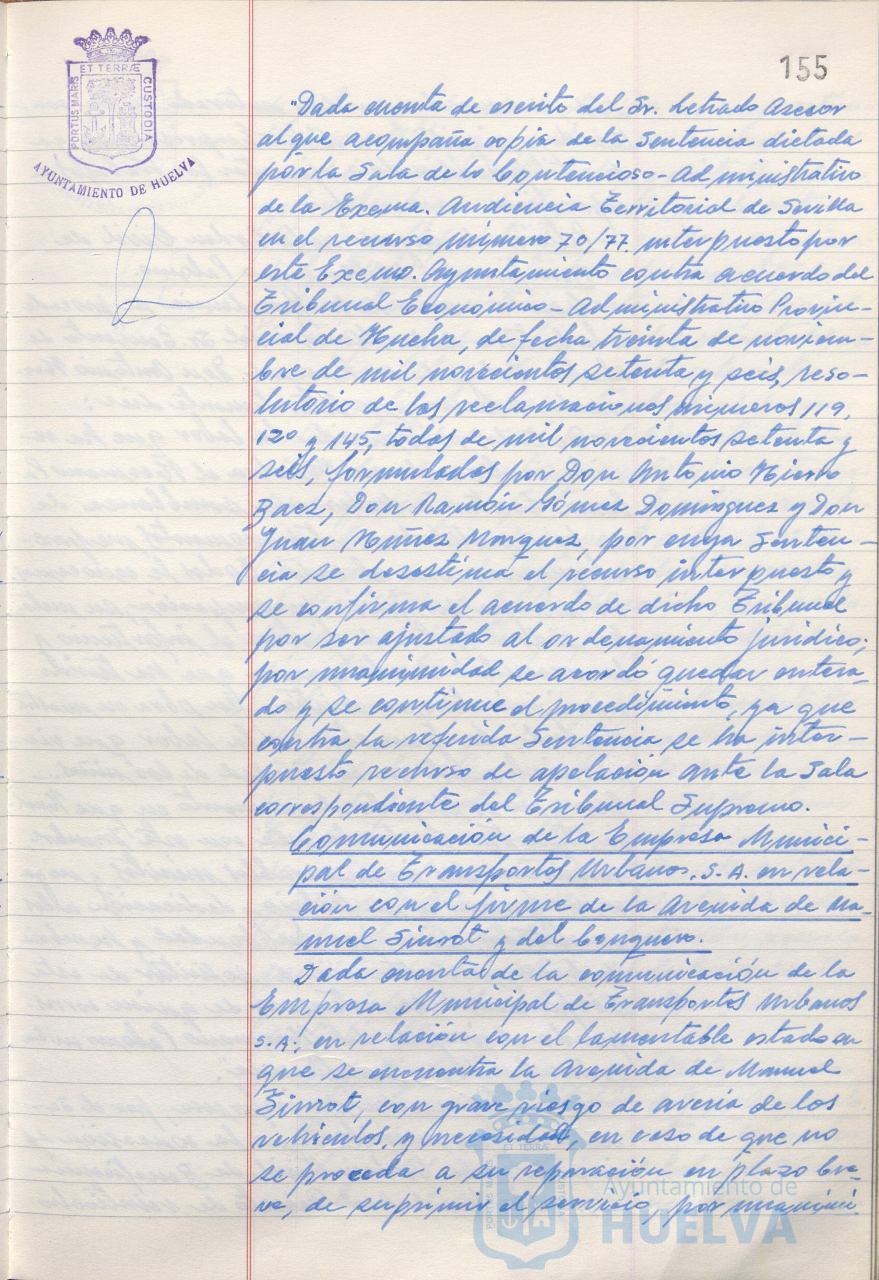 155
PORTUS MARIS ET TERRÆ CUSTODIA
AYUNTAMIENTO DE HUELVA
"Dada cuenta de escrito del Sr. Letrado Asesor
al que acompaña copia de la Sentencia dictada
por la Sala de lo Contencioso-Administrativo
de la Excma. Audiencia Territorial de Sevilla
en el recurso número 70/77 interpuesto por
este Excmo. Ayuntamiento contra acuerdo del
Tribunal Económico-Administrativo Provin-
cial de Huelva, de fecha treinta de noviem-
bre de mil novecientos setenta y seis, reso-
lutorio de las reclamaciones números 119,
120 y 145, todas de mil novecientos setenta y
seis, formuladas por Don Antonio Hierro
Baez, Don Ramón Gómez Dominguez y Don
Juan Núñez Marquez, por cuya Senten-
cia se desestima el recurso interpuesto y
se confirma el acuerdo de dicho Tribunal
por ser ajustado al ordenamiento juridico;
por unanimidad se acordó quedar entera-
do y se continue el procedimiento, ya que
contra la referida Sentencia se ha inter-
puesto recurso de apelación ante la Sala
correspondiente del Tribunal Supremo.
Comunicación de la Empresa Munici-
pal de Transportes Urbanos, S.A. en rela-
ción con el firme de la Avenida de Ma-
nuel Siurot y del Conquero.
Dada cuenta de la comunicación de la
Empresa Municipal de Transportes Urbanos
S.A., en relación con el lamentable estado en
que se encuentra la Avenida de Manuel
Siurot, con grave riesgo de avería de los
vehiculos, y necesidad, en caso de que no
se proceda a su reparación en plazo bre-
ve, de suprimir el servicio, por unanimi-
Ayuntamiento de
HUELVA